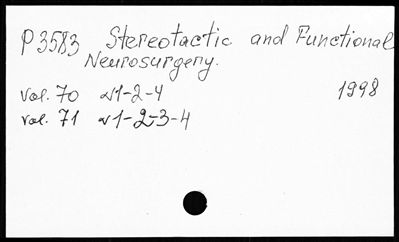 P 3583 Stereotactic and Functional
Neurosurgery.
vol. 70 N1-2-4 1998
vol. 71 N1-2-3-4